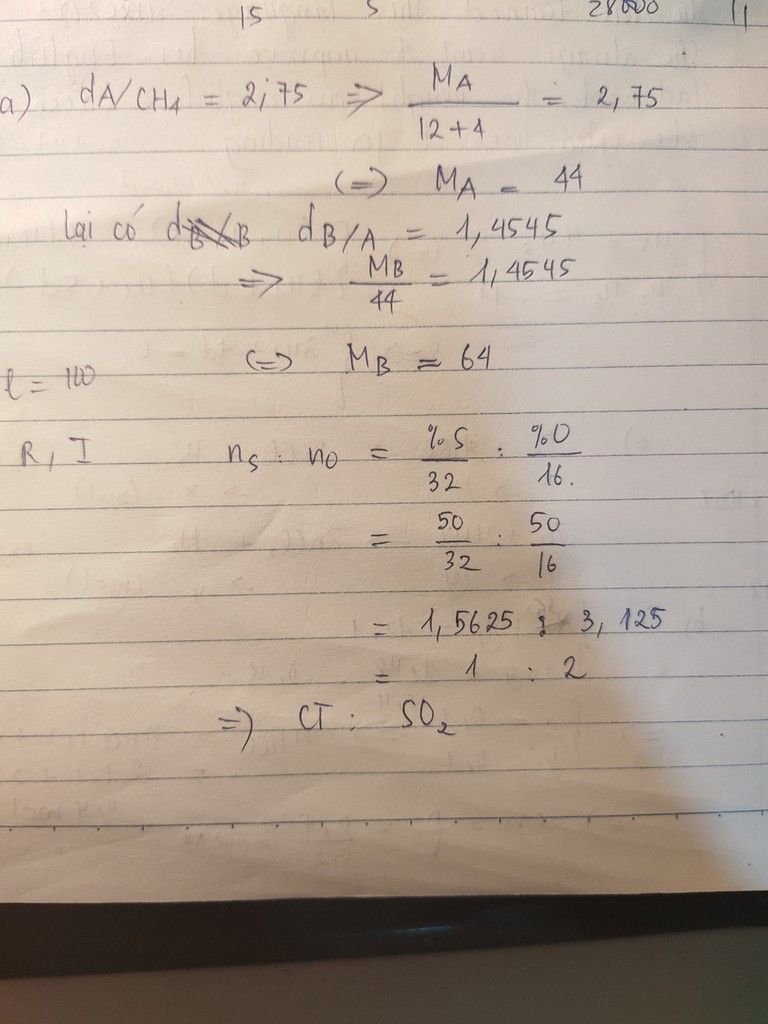 15 5 28000 11
a) dA/CH4 = 2,75 => MA / 12+4 = 2,75
(=) MA = 44
lại có dB/A = 1,4545
=> MB / 44 = 1,4545
(=) MB = 64
l = 100
R, I nS : nO = %S / 32 : %O / 16.
= 50 / 32 : 50 / 16
= 1,5625 : 3,125
= 1 : 2
=) CT : SO2